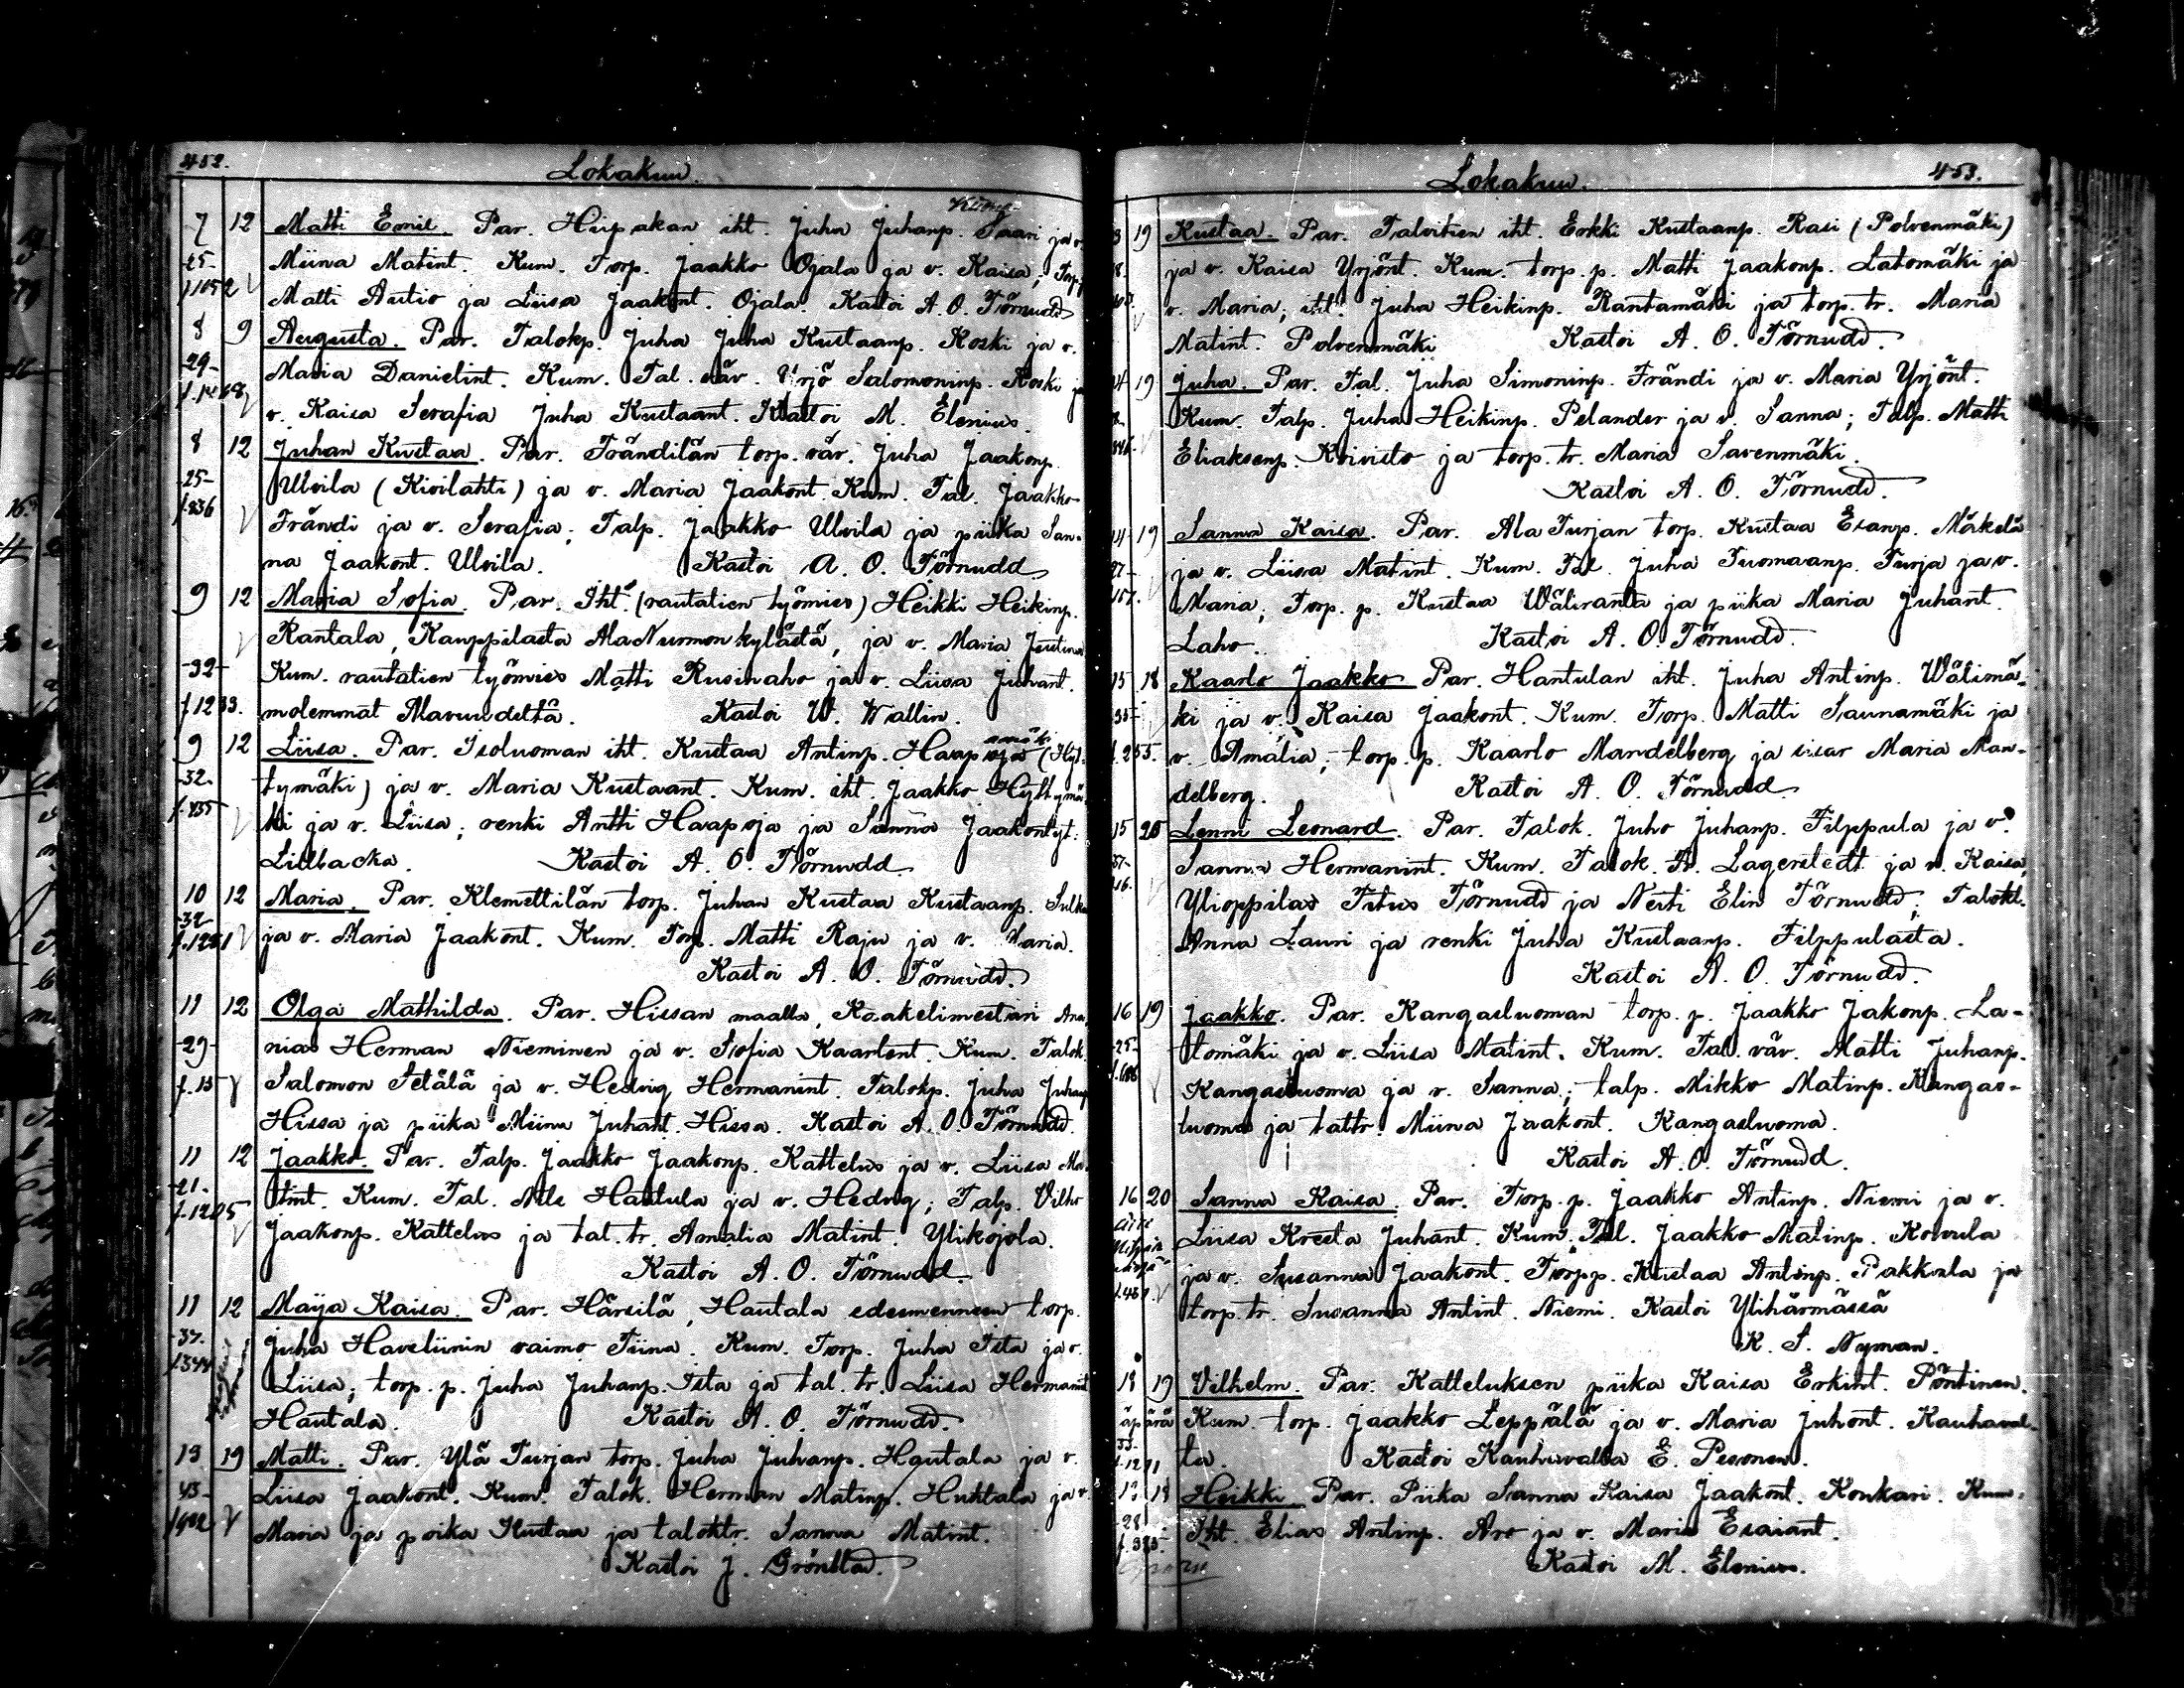 452.
Lokakuu.
7 12 Matti Emil. Par. Hiipakan iht. Juha Juhanp. Saari ja v.
25- Miina Matint. Kum. Torp. Jaakko Ojala ja v. Kaisa; Torp.
f.1052 Matti Autio ja Liisa Jaakont. Ojala. Kastoi A. O. Törnudd
8 9 Augusta. Par. Talokp. Juha Juha Kustaanp. Koski ja v.
29- Maria Danielint. Kum. Tal. väv. Yrjö Salomoninp. Koski ja
v. Kaisa Serafia Juha Kustaant. Kastoi M. Elenius.
8 12 Juhan Kustaa. Par. Frändilän torp. väv. Juha Jaakonp.
25- Ulvila (Kivilahti) ja v. Maria Jaakont. Kum. Tal. Jaakko
f.836 Frändi ja v. Serafia; Talp. Jaakko Ulvila ja piika San-
na Jaakont. Ulvila. Kastoi A. O. Törnudd
9 12 Maria Sofia. Par. Iht. (rautatien työmies) Heikki Heikinp.
Rantala, Kauppilasta AlaNurmon kylästä, ja v. Maria Justina
32- Kum. rautatien työmies Matti Rusinaho ja v. Liisa Juhant.
f.1233. molemmat Maruudelta. Kastoi W. Wallin.
9 12 Liisa. Par. Isoluoman iht. Kustaa Antinp. Haapoja (Hyt-
32- tymäki) ja v. Maria Kustaant. Kum. iht. Jaakko Hyttymä
f.435 ki ja v. Liisa; renki Antti Haapoja ja Sanna Jaakontyt.
Lillbacka. Kastoi A. O. Törnudd
10 12 Maria. Par. Klemettilän torp. Juhan Kustaa Kustaanp.
32- ja v. Maria Jaakont. Kum. Torp. Matti Raju ja v. Maria.
Kastoi A. O. Törnudd.
11 12 Olga Mathilda. Par. Hissan maalla, Kaakelimestari Ana-
29- nias Herman Nieminen ja v. Sofia Kaarlent. Kum. Talok.
f.15 Salomon Setälä ja v. Hedvig Hermanint. Talokp. Juha Juhanp.
Hissa ja piika Miina Juhant. Hissa. Kastoi A. O. Törnudd.
11 12 Jaakko. Par. Talp. Jaakko Jaakonp. Kattelus ja v. Liisa Ma-
21- tint. Kum. Tal. Nils Hautula ja v. Hedvig; Talp. Vilho
f.1205 Jaakonp. Kattelus ja tal. tr. Amalia Matint. Ylikojola.
Kastoi A. O. Törnudd.
11 12 Maija Kaisa. Par. Härsilä, Hautala edesmenneen torp.
37. Juha Haveliinin vaimo Tiina. Kum. Torp. Juha Ista ja v.
f.344 Liisa; torp. p. Juha Juhanp. Ista ja tal. tr. Liisa Hermanint
Hautala. Kastoi A. O. Törnudd.
13 19 Matti. Par. Ylä Turjan torp. Juha Juhanp. Hautala ja v.
43- Liisa Jaakont. Kum. Talok. Herman Matinp. Huhtala ja v.
Maria ja poika Kustaa ja taloktr. Sanna Matint.
Kastoi J. Grönstad.
453.
Lokakuu.
19 Kustaa. Par. Talvitien iht. Erkki Kustaanp. Rasi (Polvenmäki)
ja v. Kaisa Yrjönt. Kum. torp. p. Matti Jaakonp. Latomäki ja
v. Maria; iht. Juha Heikinp. Rantamäki ja torp. tr. Maria
Matint. Polvenmäki Kastoi A. O. Törnudd.
19 Juha. Par. Tal. Juha Simoninp. Frändi ja v. Maria Yrjönt.
Kum. Talp. Juha Heikinp. Pelander ja v. Sanna; Talp. Matti
Eliaksenp. Koivisto ja torp. tr. Maria Savenmäki.
Kastoi A. O. Törnudd.
14 19 Sanna Kaisa. Par. Ala Turjan torp. Kustaa Esanp. Mäkelä
27- ja v. Liisa Matint. Kum. Tal. Juha Tuomaanp. Turja ja v.
Maria; Torp. p. Kustaa Wäliranta ja piika Maria Juhant.
Laho. Kastoi A. O. Törnudd.
15 18 Kaarlo Jaakko Par. Hantulan iht. Juha Antinp. Wälimä-
35- ki ja v. Kaisa Jaakont. Kum. Torp. Matti Saunamäki ja
f.255. v. Amalia; torp. p. Kaarlo Mandelberg ja sisar Maria Man-
delberg. Kastoi A. O. Törnudd
15 20 Lenni Leonard. Par. Talok. Juho Juhanp. Filppula ja v.
37- Sanna Hermanint. Kum. Talok. Fr. Lagerstedt ja v. Kaisa,
16. Ylioppilas Titus Törnudd ja Neiti Elin Törnudd; Taloktr.
Anna Lauri ja renki Juha Kustaanp. Filppulasta.
Kastoi A. O. Törnudd.
16 19 Jaakko. Par. Kangasluoman torp. p. Jaakko Jakonp. La-
25- tomäki ja v. Liisa Matint. Kum. Tal. väv. Matti Juhanp.
Kangasluoma ja v. Sanna; talp. Mikko Matinp. Kangas-
luoma ja taltr. Miina Jaakont. Kangasluoma.
Kastoi A. O. Törnudd.
16 20 Sanna Kaisa. Par. Torp. p. Jaakko Antinp. Niemi ja v.
Liisa Kreeta Juhant. Kum. Tal. Jaakko Matinp. Kovula
ja v. Susanna Jaakont. Torp p. Kustaa Antinp. Pakkala ja
torp. tr. Susanna Antint. Niemi. Kastoi Ylihärmässä
K. S. Nyman.
18 19 Vilhelm. Par. Katteluksen piika Kaisa Erkint. Pöntinen.
äpärä Kum. torp. Jaakko Leppälä ja v. Maria Juhont. Kauhaval-
33- ta. Kastoi Kauhavalla E. Pesonen.
18 Heikki Par. Piika Sanna Kaisa Jaakont. Konkari. Kum.
28 Iht. Elias Antinp. Aro ja v. Maria Esaiant.
Kastoi M. Elenius.